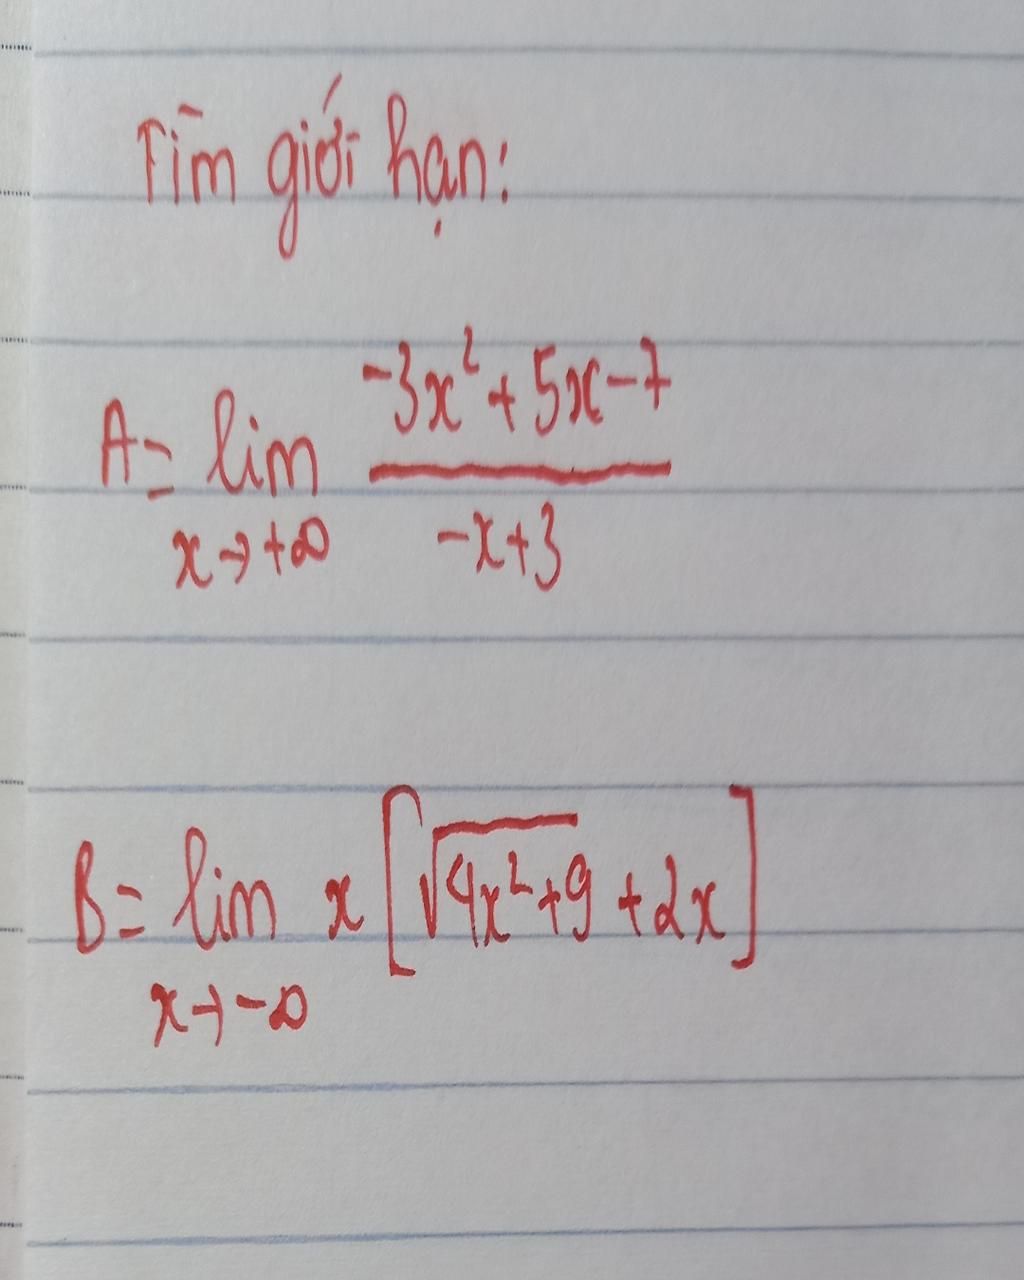 Tìm giới hạn:
A = lim_{x→+∞} \frac{-3x^2 + 5x - 7}{-x + 3}
B = lim_{x→-∞} x [\sqrt{4x^2 + 9} + 2x]